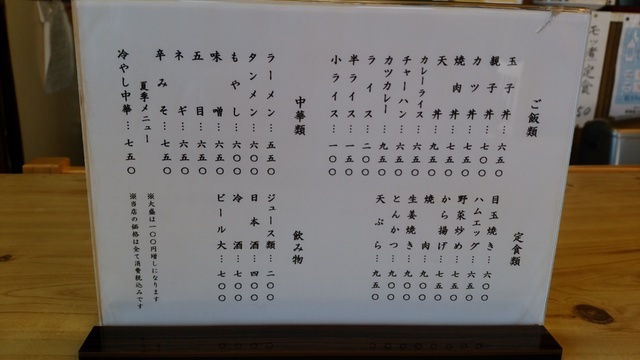 ご飯類
玉子丼…六五〇
親子丼…七〇〇
カツ丼…七五〇
焼肉丼…七五〇
天丼…九五〇
カレーライス…六五〇
チャーハン…六五〇
カツカレー…九五〇
ライス…二〇〇
半ライス…一五〇
小ライス…一〇〇
中華類
ラーメン…五五〇
タンメン…六〇〇
もやし…六〇〇
味噌…六五〇
五目…七五〇
ネギ…六五〇
辛みそ…七五〇
夏季メニュー
冷やし中華…七五〇
定食類
目玉焼き…六〇〇
ハムエッグ…六五〇
野菜炒め…七五〇
から揚げ…七五〇
焼肉…九〇〇
生姜焼き…九〇〇
とんかつ…九〇〇
天ぷら…九五〇
飲み物
ジュース類…二〇〇
日本酒…四〇〇
冷酒…七〇〇
ビール大…七〇〇
※大盛は一〇〇円増しになります
※当店の価格は全て消費税込みです